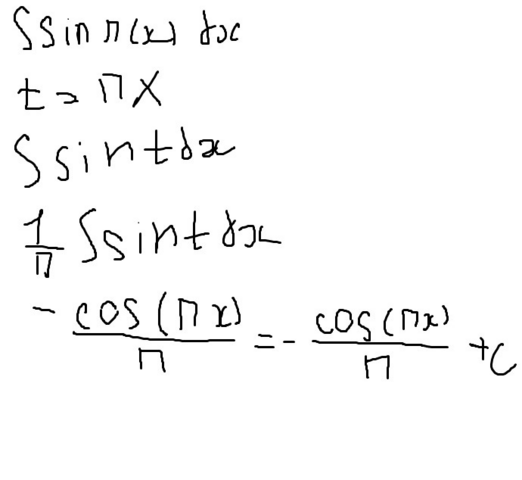 ∫sin π(x) dx
t = πx
∫sin t dx
1/π ∫sin t dx
- cos(πx)/π = - cos(πx)/π + C